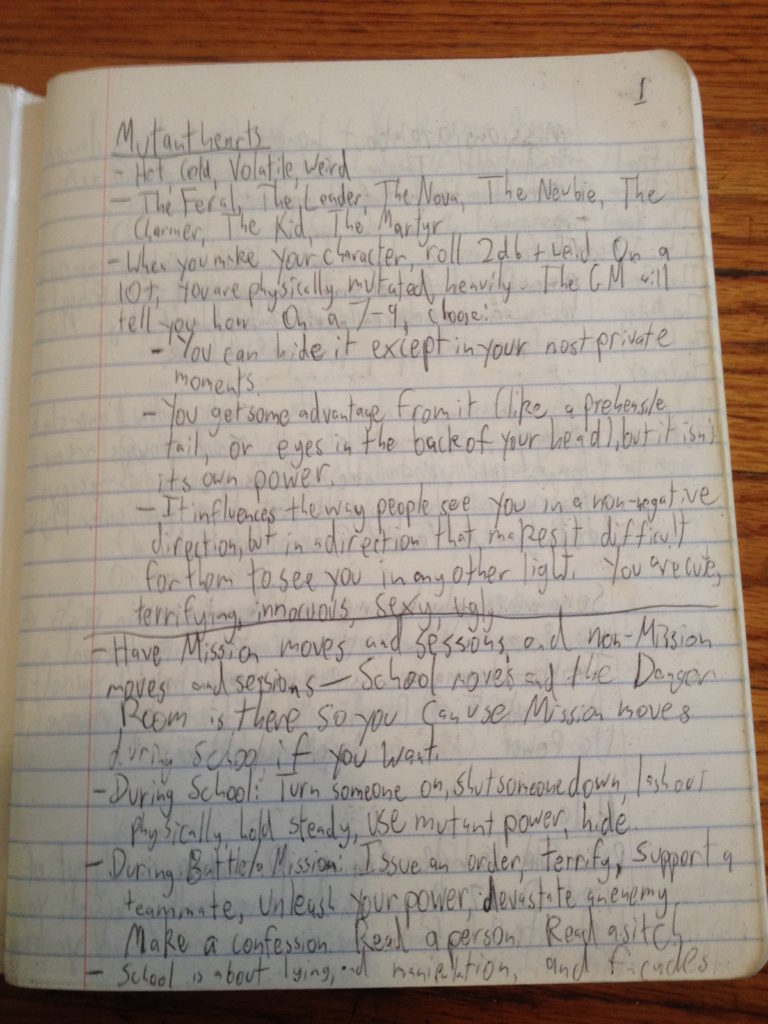 1
Mutanthearts
- Hot, Cold, Volatile, Weird
- The Feral, The Leader, The Nova, The Newbie, The
Charmer, The Kid, The Martyr
- When you make your character, roll 2d6 + weird. On a
10+, you are physically mutated heavily. The GM will
tell you how. On a 7-9, choose:
- You can hide it except in your most private
moments.
- You get some advantage from it (like a prehensile
tail, or eyes in the back of your head), but it isn't
its own power.
- It influences the way people see you in a non-negative
direction, but in a direction that makes it difficult
for them to see you in any other light. You are cute,
terrifying, innocuous, sexy, ugly
- Have Mission moves and sessions, and non-Mission
moves and sessions - School moves and the Danger
Room is there so you can use Mission moves
during School if you want.
- During School: Turn someone on, shut someone down, lash out
physically, hold steady, use mutant power, hide.
- During Battle/a Mission: Issue an order, terrify, support a
teammate, unleash your power, devastate an enemy
Make a confession. Read a person. Read a sitch
- School is about lying, and and facades